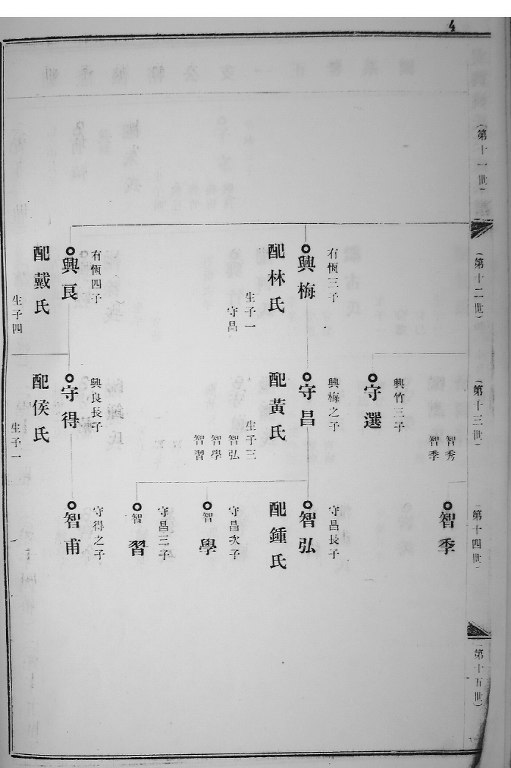 4
（第十一世）
（第十二世）
（第十三世）
（第十四世）
（第十五世）
有恆三子
興梅
配林氏
生子一
守昌
有恆四子
興良
配戴氏
生子四
智秀
智季
興竹三子
守選
興梅之子
守昌
配黃氏
生子三
智弘
智學
智習
興良長子
守得
配侯氏
生子一
智季
守昌長子
智弘
配鍾氏
守昌次子
智學
守昌三子
智習
守得之子
智甫